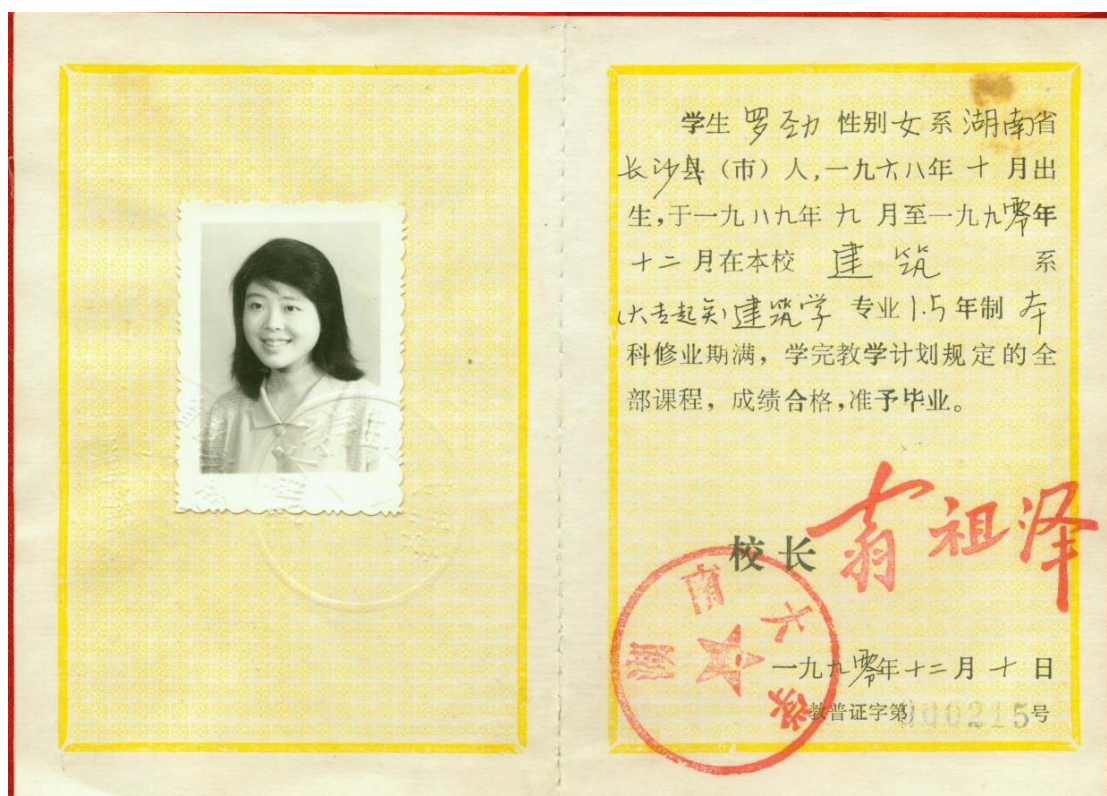 学生 罗劲 性别 女 系 湖南省
长沙县（市）人，一九六八年 十 月出
生，于一九八九年 九 月至一九九零年
十二 月在本校 建筑 系
(大专起点)建筑学 专业 1.5 年制 本
科修业期满，学完教学计划规定的全
部课程，成绩合格，准予毕业。
校长 翁祖泽
湖南大学
一九九零年十二月十日
教普证字第000215号